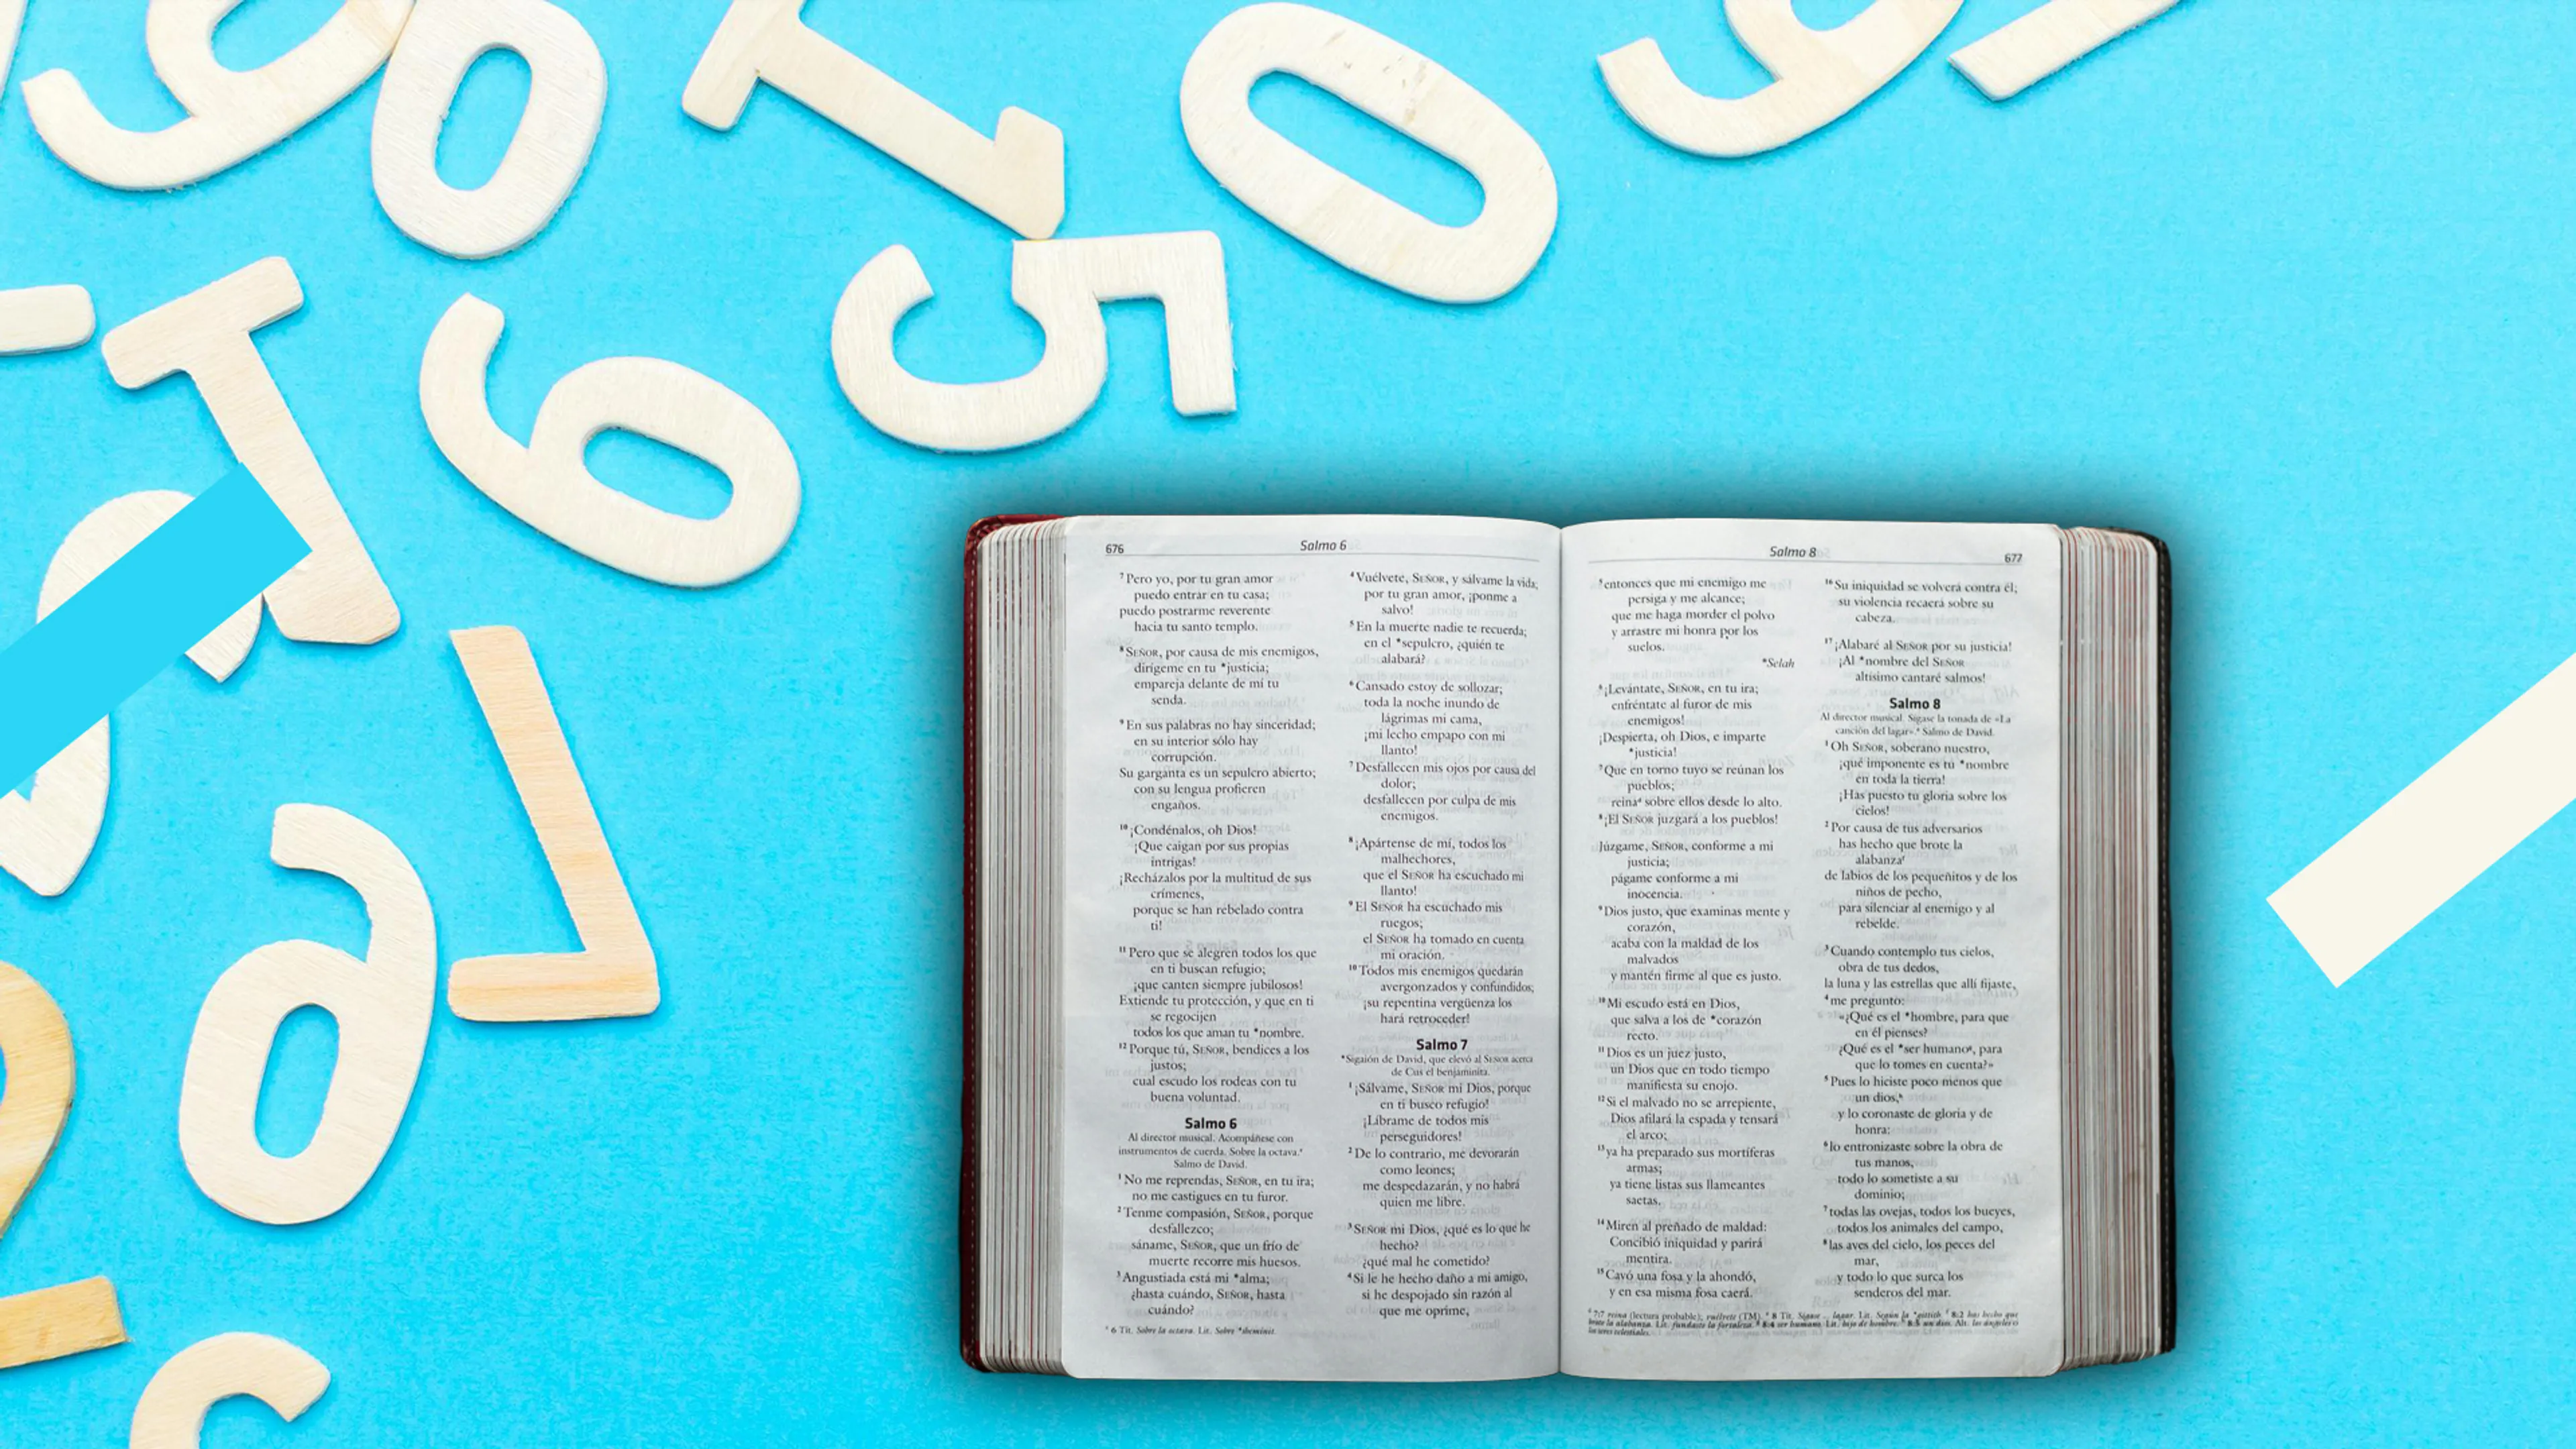 676
Salmo 6
7 Pero yo, por tu gran amor
puedo entrar en tu casa;
puedo postrarme reverente
hacia tu santo templo.
8 SEÑOR, por causa de mis enemigos,
dirígeme en tu *justicia;
empareja delante de mí tu
senda.
9 En sus palabras no hay sinceridad;
en su interior sólo hay
corrupción.
Su garganta es un sepulcro abierto;
con su lengua profieren
engaños.
10 ¡Condénalos, oh Dios!
¡Que caigan por sus propias
intrigas!
¡Recházalos por la multitud de sus
crímenes,
porque se han rebelado contra
ti!
11 Pero que se alegren todos los que
en ti buscan refugio;
¡que canten siempre jubilosos!
Extiende tu protección, y que en ti
se regocijen
todos los que aman tu *nombre.
12 Porque tú, SEÑOR, bendices a los
justos;
cual escudo los rodeas con tu
buena voluntad.
Salmo 6
Al director musical. Acompáñese con
instrumentos de cuerda. Sobre la octava.
Salmo de David.
1 No me reprendas, SEÑOR, en tu ira;
no me castigues en tu furor.
2 Tenme compasión, SEÑOR, porque
desfallezco;
sáname, SEÑOR, que un frío de
muerte recorre mis huesos.
3 Angustiada está mi *alma;
¿hasta cuándo, SEÑOR, hasta
cuándo?
6 Tít. Sobre la octava. Lit. Sobre *sheminit.
4 Vuélvete, SEÑOR, y sálvame la vida;
por tu gran amor, ¡ponme a
salvo!
5 En la muerte nadie te recuerda;
en el *sepulcro, ¿quién te
alabará?
6 Cansado estoy de sollozar;
toda la noche inundo de
lágrimas mi cama,
¡mi lecho empapo con mi
llanto!
7 Desfallecen mis ojos por causa del
dolor;
desfallecen por culpa de mis
enemigos.
8 ¡Apártense de mí, todos los
malhechores,
que el SEÑOR ha escuchado mi
llanto!
9 El SEÑOR ha escuchado mis
ruegos;
el SEÑOR ha tomado en cuenta
mi oración.
10 Todos mis enemigos quedarán
avergonzados y confundidos;
¡su repentina vergüenza los
hará retroceder!
Salmo 7
*Sigaión de David, que elevó al SEÑOR acerca
de Cus el benjaminita.
1 ¡Sálvame, SEÑOR mi Dios, porque
en ti busco refugio!
¡Líbrame de todos mis
perseguidores!
2 De lo contrario, me devorarán
como leones;
me despedazarán, y no habrá
quien me libre.
3 SEÑOR mi Dios, ¿qué es lo que he
hecho?
¿qué mal he cometido?
4 Si le he hecho daño a mi amigo,
si he despojado sin razón al
que me oprime,
Salmo 8
677
5 entonces que mi enemigo me
persiga y me alcance;
que me haga morder el polvo
y arrastre mi honra por los
suelos.
*Selah
6 ¡Levántate, SEÑOR, en tu ira;
enfréntate al furor de mis
enemigos!
¡Despierta, oh Dios, e imparte
*justicia!
7 Que en torno tuyo se reúnan los
pueblos;
reina sobre ellos desde lo alto.
8 ¡El SEÑOR juzgará a los pueblos!
Júzgame, SEÑOR, conforme a mi
justicia;
págame conforme a mi
inocencia.
9 Dios justo, que examinas mente y
corazón,
acaba con la maldad de los
malvados
y mantén firme al que es justo.
10 Mi escudo está en Dios,
que salva a los de *corazón
recto.
11 Dios es un juez justo,
un Dios que en todo tiempo
manifiesta su enojo.
12 Si el malvado no se arrepiente,
Dios afilará la espada y tensará
el arco;
13 ya ha preparado sus mortíferas
armas;
ya tiene listas sus llameantes
saetas.
14 Miren al preñado de maldad:
Concibió iniquidad y parirá
mentira.
15 Cavó una fosa y la ahondó,
y en esa misma fosa caerá.
16 Su iniquidad se volverá contra él;
su violencia recaerá sobre su
cabeza.
17 ¡Alabaré al SEÑOR por su justicia!
¡Al *nombre del SEÑOR
altísimo cantaré salmos!
Salmo 8
Al director musical. Sígase la tonada de «La
canción del lagar». Salmo de David.
1 Oh SEÑOR, soberano nuestro,
¡qué imponente es tu *nombre
en toda la tierra!
¡Has puesto tu gloria sobre los
cielos!
2 Por causa de tus adversarios
has hecho que brote la
alabanza
de labios de los pequeñitos y de los
niños de pecho,
para silenciar al enemigo y al
rebelde.
3 Cuando contemplo tus cielos,
obra de tus dedos,
la luna y las estrellas que allí fijaste,
4 me pregunto:
«¿Qué es el *hombre, para que
en él pienses?
¿Qué es el *ser humano, para
que lo tomes en cuenta?»
5 Pues lo hiciste poco menos que
un dios,
y lo coronaste de gloria y de
honra:
6 lo entronizaste sobre la obra de
tus manos,
todo lo sometiste a su
dominio;
7 todas las ovejas, todos los bueyes,
todos los animales del campo,
8 las aves del cielo, los peces del
mar,
y todo lo que surca los
senderos del mar.
7:7 reina (lectura probable); vuélvete (TM). 8 Tít. Sígase … lagar. Lit. Según la *gittith. 8:2 has hecho que
brote la alabanza. Lit. fundaste la fortaleza. 8:4 ser humano. Lit. hijo de hombre. 8:5 un dios. Alt. los ángeles o
los seres celestiales.